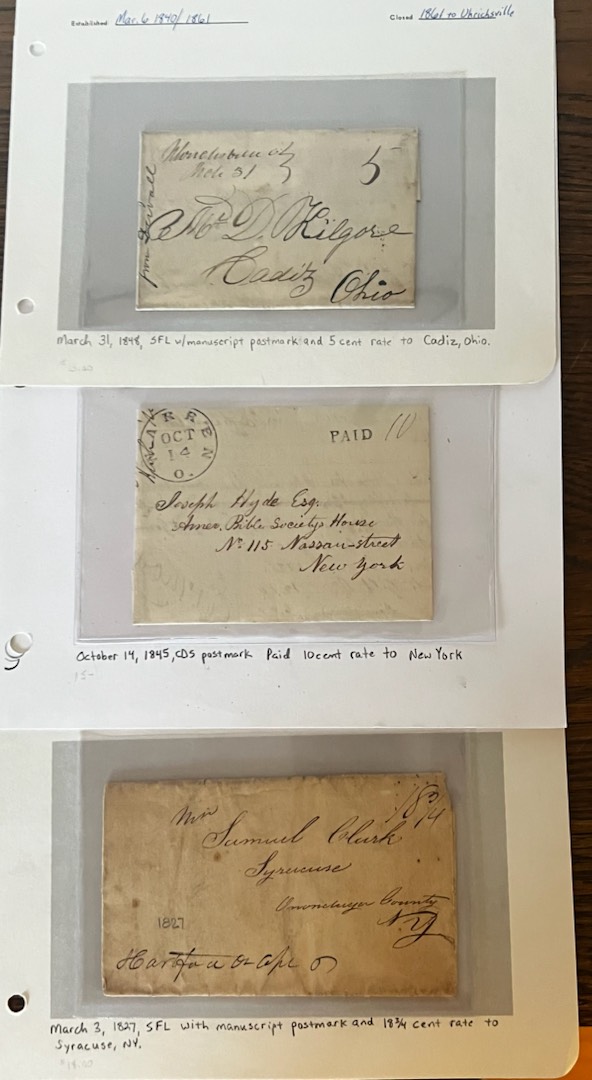 Established Mar. 6 1840/1861 Closed 1861 to Uhrichsville
5
Mr D. Kilgore
Cadiz
Ohio
March 31, 1848, SFL w/manuscript postmark and 5 cent rate to Cadiz, Ohio.
OCT
14
O.
PAID 10
Joseph Hyde Esq.
Amer. Bible Societys House
No 115 Nassau-street
New York
October 14, 1845, CDS postmark Paid 10 cent rate to New York
15-
18 3/4
Samuel Clark
Syracuse
Onondaga County
N.Y
1827
March 3, 1827, SFL with manuscript postmark and 18 3/4 cent rate to
Syracuse, NY.